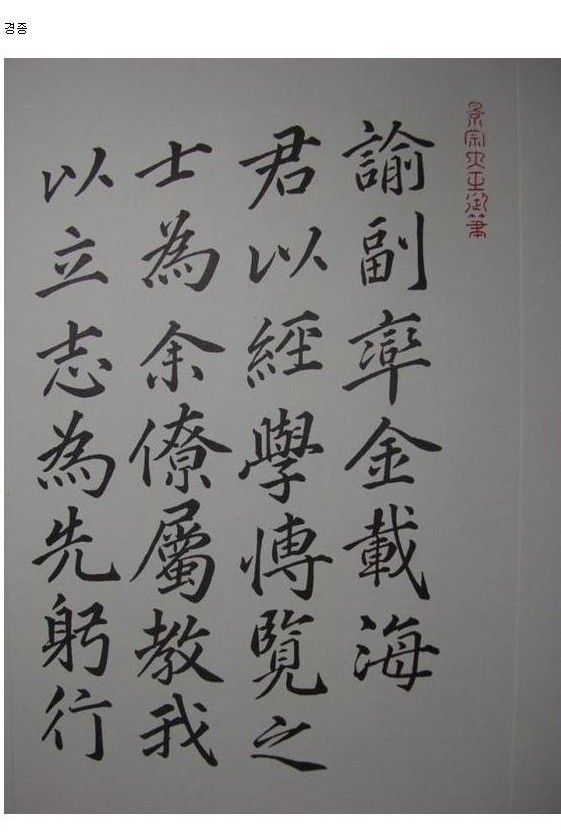 경종
景宗大王御筆
諭副率金載海
君以經學博覽之
士為余僚屬教我
以立志為先躬行